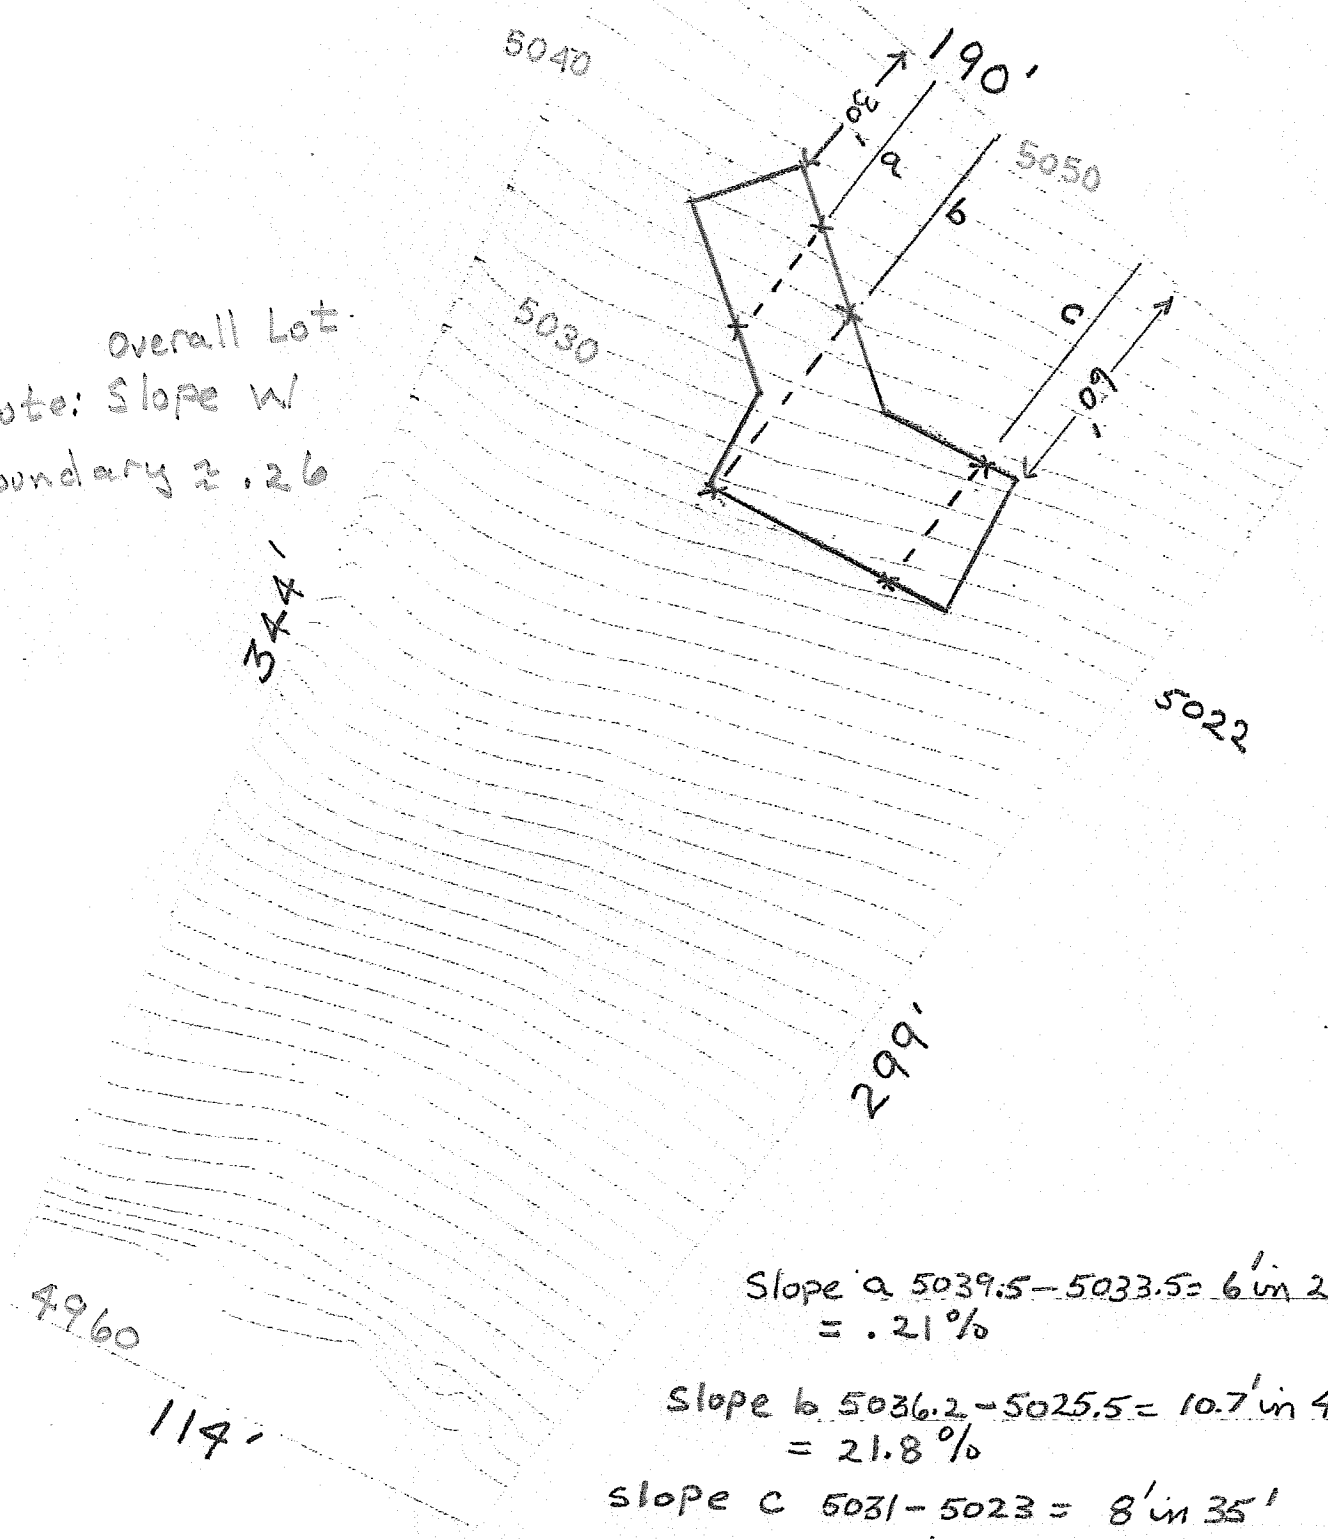 5040
190'
30'
a
5050
b
5030
c
60'
Overall Lot
ote: Slope W
oundary ± .26
344'
5022
299'
4960
114'
Slope a 5039.5 - 5033.5 = 6' in 2
= .21%
Slope b 5036.2 - 5025.5 = 10.7' in 4
= 21.8%
Slope c 5031 - 5023 = 8' in 35'